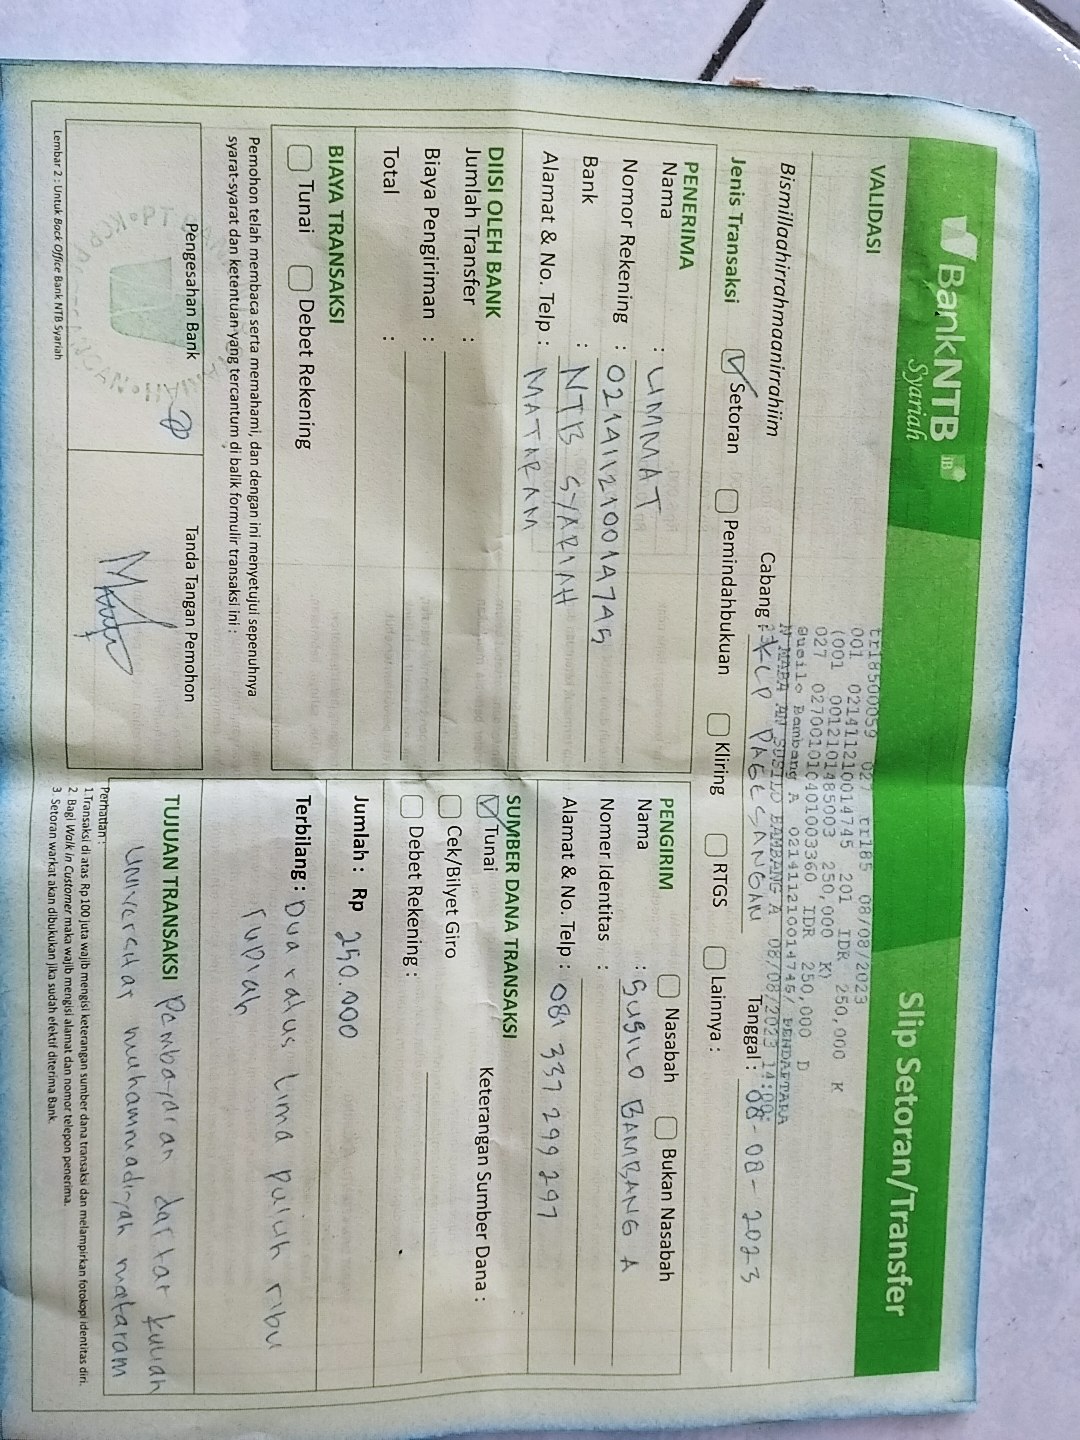 BankNTB iB
Syariah
Slip Setoran/Transfer
VALIDASI
tr18500059 027 tr185 08/08/2023
001 021411210014745 201 IDR 250,000 K
(001 0012101485003 250,000 K)
027 027001010401003360 IDR 250,000 D
Susilo Bambang A 021411210014745/ PENDAFTARA
N MABA AN SUSILO BAMBANG A 08/08/2023 14:00:
Bismillaahirrahmaanirrahiim
Cabang : KCP PAGESANGAN
Tanggal : 08-08-2023
Jenis Transaksi Setoran Pemindahbukuan Kliring RTGS Lainnya :
PENERIMA
Nama : UMMAT
Nomor Rekening : 021411210014745
Bank : NTB SYARIAH
Alamat & No. Telp : MATARAM
PENGIRIM Nasabah Bukan Nasabah
Nama : SUSILO BAMBANG A
Nomer Identitas :
Alamat & No. Telp : 081 337 299 297
DIISI OLEH BANK
Jumlah Transfer :
Biaya Pengiriman :
Total :
SUMBER DANA TRANSAKSI
Tunai Keterangan Sumber Dana :
Cek/Bilyet Giro
Debet Rekening :
BIAYA TRANSAKSI
Tunai Debet Rekening
Jumlah : Rp 250.000
Terbilang : Dua ratus lima puluh ribu
rupiah
Pemohon telah membaca serta memahami, dan dengan ini menyetujui sepenuhnya
syarat-syarat dan ketentuan yang tercantum di balik formulir transaksi ini :
Pengesahan Bank
Tanda Tangan Pemohon
TUJUAN TRANSAKSI Pembayaran daftar kuliah
Universitas muhammadiyah mataram
Lembar 2 : Untuk Back Office Bank NTB Syariah
Perhatian :
1.Transaksi di atas Rp 100 juta wajib mengisi keterangan sumber dana transaksi dan melampirkan fotokopi identitas diri.
2. Bagi Walk In Customer maka wajib mengisi alamat dan nomor telepon penerima.
3. Setoran warkat akan dibukukan jika sudah efektif diterima Bank.